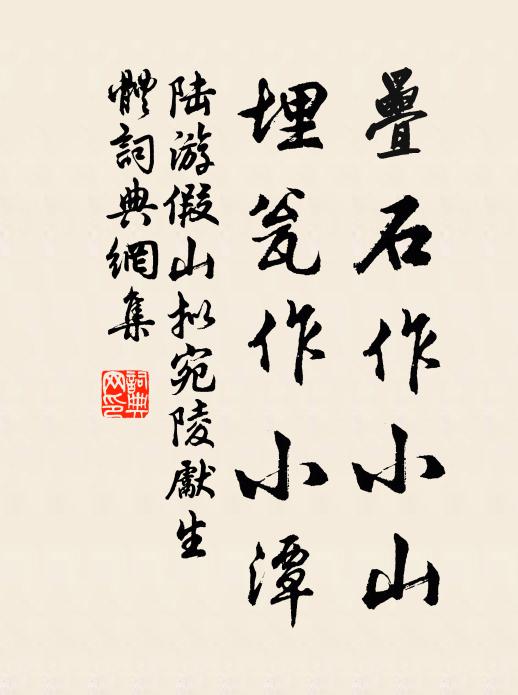 疊石作小山
埋瓮作小潭
陆游假山拟宛陵獻生
體詞典網集
詞典
网印